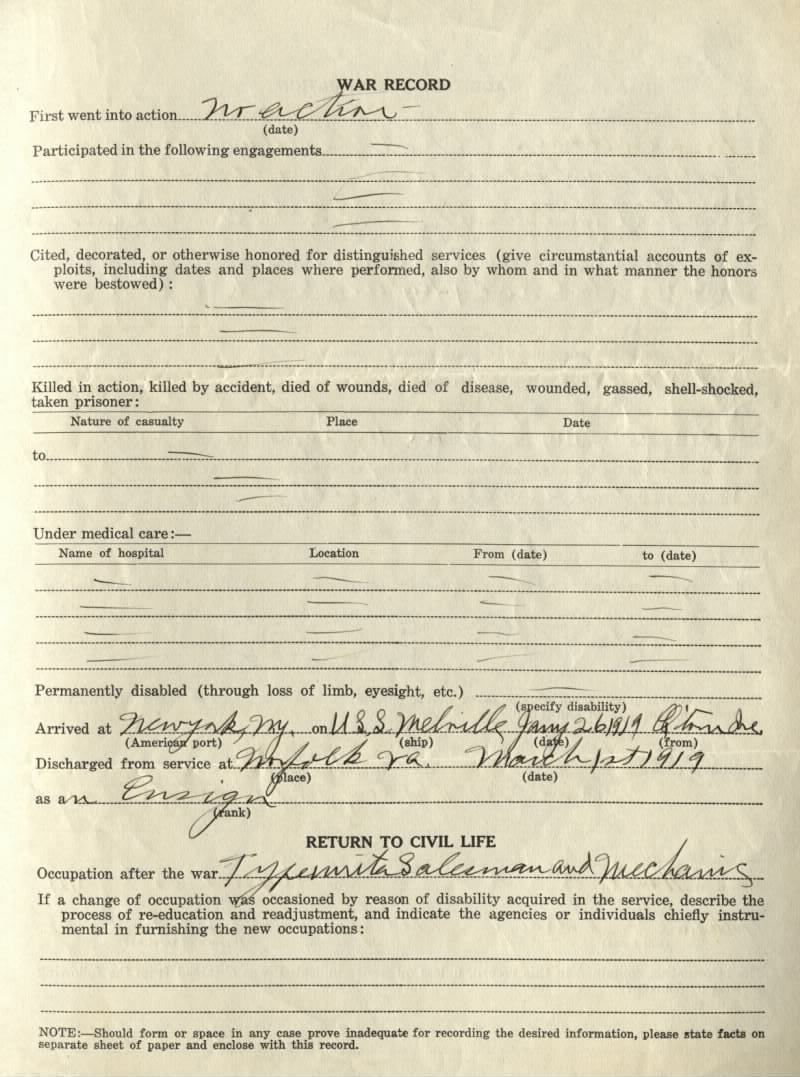 WAR RECORD
First went into action No action —
(date)
Participated in the following engagements —
—
—
—
Cited, decorated, or otherwise honored for distinguished services (give circumstantial accounts of ex-
ploits, including dates and places where performed, also by whom and in what manner the honors
were bestowed) :
—
—
—
Killed in action, killed by accident, died of wounds, died of disease, wounded, gassed, shell-shocked,
taken prisoner:
Nature of casualty Place Date
to —
—
—
Under medical care:—
Name of hospital Location From (date) to (date)
— — — —
— — — —
— — — —
— — — —
Permanently disabled (through loss of limb, eyesight, etc.) —
(specify disability)
Arrived at New York, N.Y. on U.S.S. Melville Jany 26 1919
(American port) (ship) (date) (from)
Discharged from service at Norfolk Va. March 1st 1919
(place) (date)
as an Ensign
(rank)
RETURN TO CIVIL LIFE
Occupation after the war Typewriter Salesman and Mechanic
If a change of occupation was occasioned by reason of disability acquired in the service, describe the
process of re-education and readjustment, and indicate the agencies or individuals chiefly instru-
mental in furnishing the new occupations:
NOTE:—Should form or space in any case prove inadequate for recording the desired information, please state facts on
separate sheet of paper and enclose with this record.